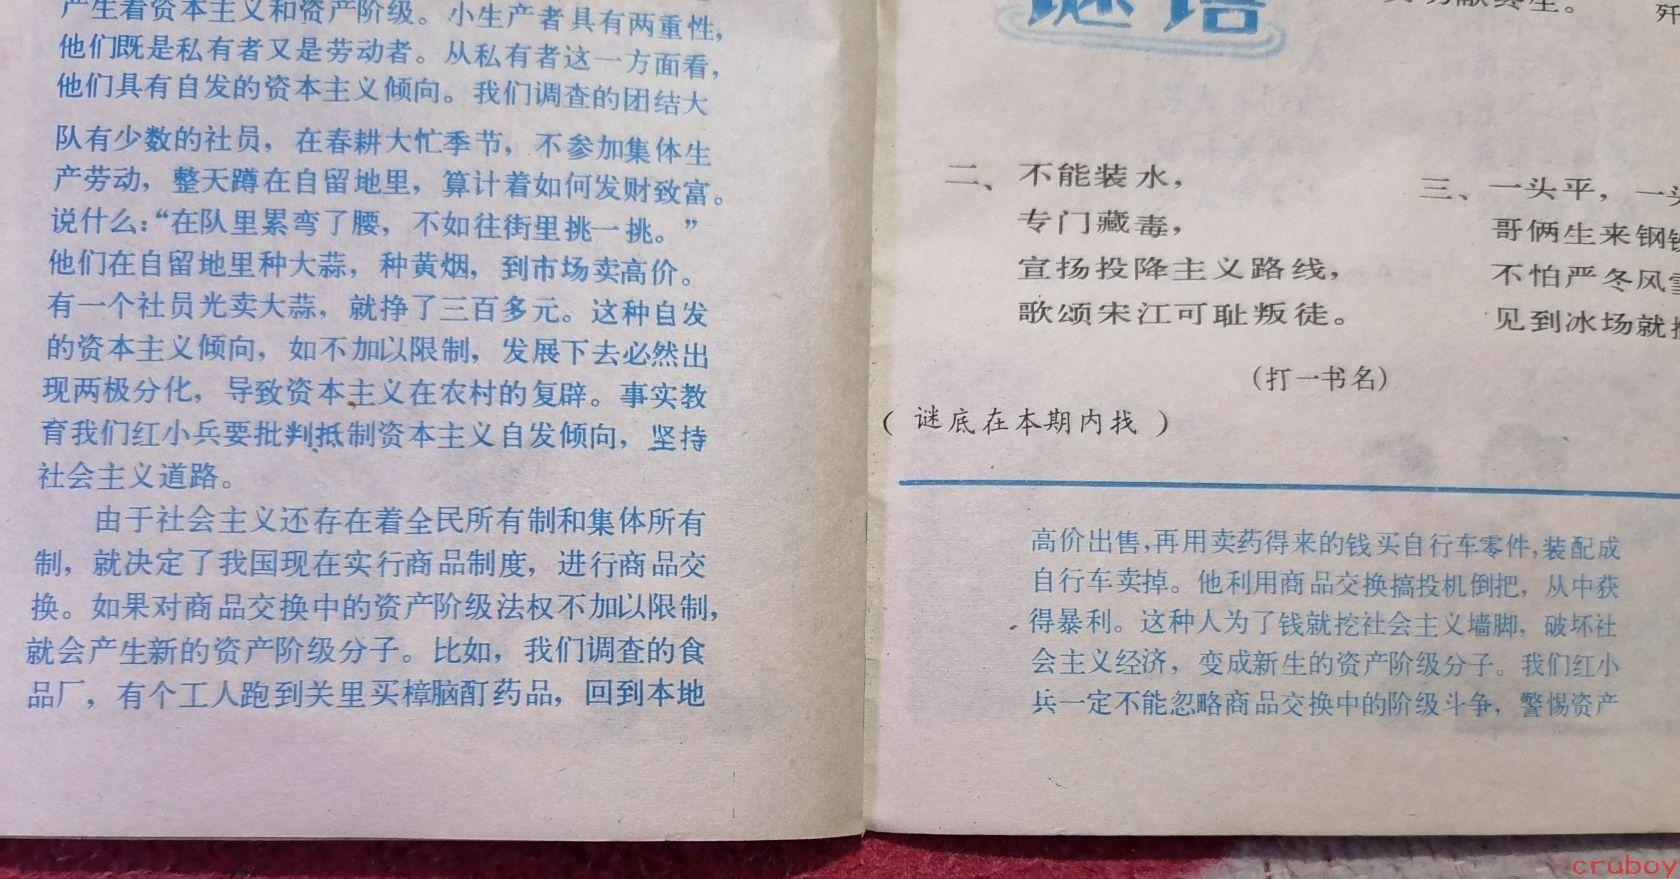 产生着资本主义和资产阶级。小生产者具有两重性，
他们既是私有者又是劳动者。从私有者这一方面看，
他们具有自发的资本主义倾向。我们调查的团结大
队有少数的社员，在春耕大忙季节，不参加集体生
产劳动，整天蹲在自留地里，算计着如何发财致富。
说什么：“在队里累弯了腰，不如往街里挑一挑。”
他们在自留地里种大蒜，种黄烟，到市场卖高价。
有一个社员光卖大蒜，就挣了三百多元。这种自发
的资本主义倾向，如不加以限制，发展下去必然出
现两极分化，导致资本主义在农村的复辟。事实教
育我们红小兵要批判抵制资本主义自发倾向，坚持
社会主义道路。
由于社会主义还存在着全民所有制和集体所有
制，就决定了我国现在实行商品制度，进行商品交
换。如果对商品交换中的资产阶级法权不加以限制，
就会产生新的资产阶级分子。比如，我们调查的食
品厂，有个工人跑到关里买樟脑酊药品，回到本地
谜语
献终生。
二、不能装水，
专门藏毒，
宣扬投降主义路线，
歌颂宋江可耻叛徒。
（打一书名）
三、一头平，一头
哥俩生来钢
不怕严冬风雪
见到冰场就
（谜底在本期内找）
高价出售，再用卖药得来的钱买自行车零件，装配成
自行车卖掉。他利用商品交换搞投机倒把，从中获
得暴利。这种人为了钱就挖社会主义墙脚，破坏社
会主义经济，变成新生的资产阶级分子。我们红小
兵一定不能忽略商品交换中的阶级斗争，警惕资产
cruboy